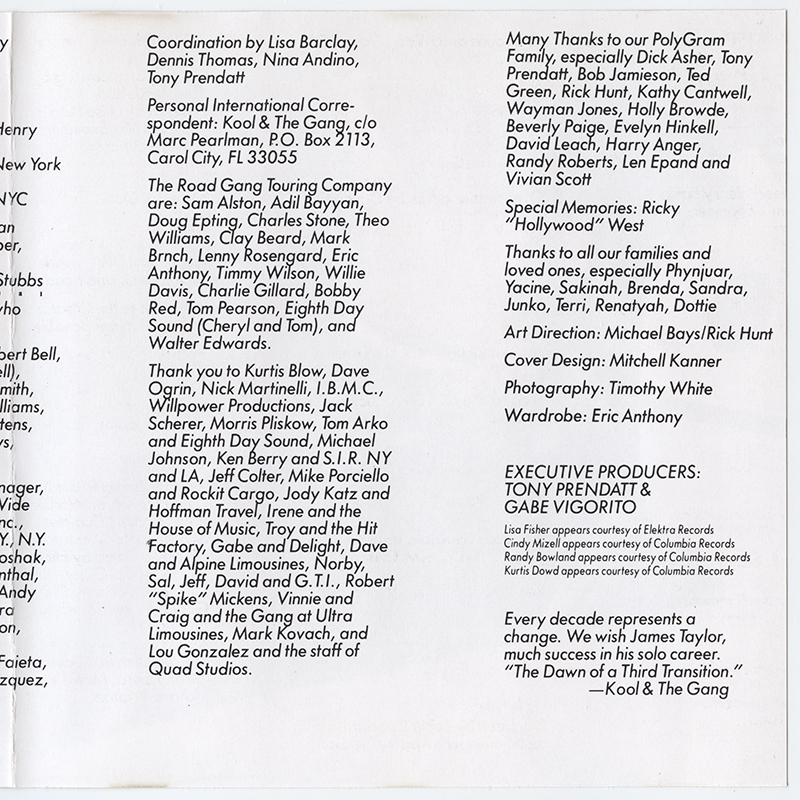 y
Henry
New York
NYC
an
ber,
Stubbs
who
bert Bell,
ell),
mith,
lliams,
tens,
ys,
nager,
Wide
nc.,
Y., N.Y.
oshak,
nthal,
Andy
ra
on,
Faieta,
zquez,
Coordination by Lisa Barclay,
Dennis Thomas, Nina Andino,
Tony Prendatt
Personal International Corre-
spondent: Kool & The Gang, c/o
Marc Pearlman, P.O. Box 2113,
Carol City, FL 33055
The Road Gang Touring Company
are: Sam Alston, Adil Bayyan,
Doug Epting, Charles Stone, Theo
Williams, Clay Beard, Mark
Brnch, Lenny Rosengard, Eric
Anthony, Timmy Wilson, Willie
Davis, Charlie Gillard, Bobby
Red, Tom Pearson, Eighth Day
Sound (Cheryl and Tom), and
Walter Edwards.
Thank you to Kurtis Blow, Dave
Ogrin, Nick Martinelli, I.B.M.C.,
Willpower Productions, Jack
Scherer, Morris Pliskow, Tom Arko
and Eighth Day Sound, Michael
Johnson, Ken Berry and S.I.R. NY
and LA, Jeff Colter, Mike Porciello
and Rockit Cargo, Jody Katz and
Hoffman Travel, Irene and the
House of Music, Troy and the Hit
Factory, Gabe and Delight, Dave
and Alpine Limousines, Norby,
Sal, Jeff, David and G.T.I., Robert
"Spike" Mickens, Vinnie and
Craig and the Gang at Ultra
Limousines, Mark Kovach, and
Lou Gonzalez and the staff of
Quad Studios.
Many Thanks to our PolyGram
Family, especially Dick Asher, Tony
Prendatt, Bob Jamieson, Ted
Green, Rick Hunt, Kathy Cantwell,
Wayman Jones, Holly Browde,
Beverly Paige, Evelyn Hinkell,
David Leach, Harry Anger,
Randy Roberts, Len Epand and
Vivian Scott
Special Memories: Ricky
"Hollywood" West
Thanks to all our families and
loved ones, especially Phynjuar,
Yacine, Sakinah, Brenda, Sandra,
Junko, Terri, Renatyah, Dottie
Art Direction: Michael Bays/Rick Hunt
Cover Design: Mitchell Kanner
Photography: Timothy White
Wardrobe: Eric Anthony
EXECUTIVE PRODUCERS:
TONY PRENDATT &
GABE VIGORITO
Lisa Fisher appears courtesy of Elektra Records
Cindy Mizell appears courtesy of Columbia Records
Randy Bowland appears courtesy of Columbia Records
Kurtis Dowd appears courtesy of Columbia Records
Every decade represents a
change. We wish James Taylor,
much success in his solo career.
"The Dawn of a Third Transition."
—Kool & The Gang